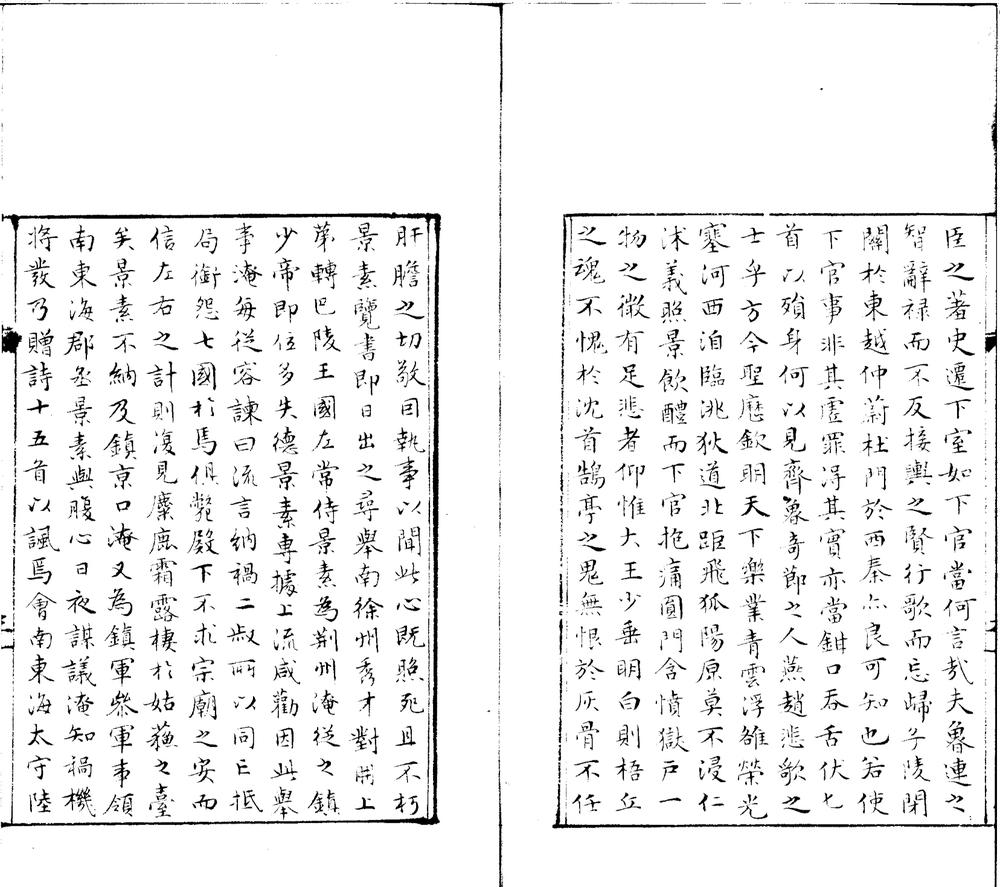 臣之著史遷下室如下官當何言㢤夫魯連之
智辭禄而不反接輿之賢行歌而忘歸子陵閉
關於東越仲蔚杜門於西秦亦良可知也若使
下官事非其虛罪淂其實亦當鉗口吞舌伏匕
首以殞身何以見齊魯奇節之人燕趙悲歌之
士乎方今聖厯欽明天下樂業青雲浮雒榮光
塞河西洎臨洮狄道北距飛狐陽原莫不浸仁
沐義照景飲醴而下官抱痛圓門含憤獄戸一
物之微有足悲者仰惟大王少垂明白則梧丘
之魂不愧於沈首鵠亭之鬼無恨於灰骨不任
肝膽之切敬因執事以聞此心既照死且不朽
景素覽書即日出之尋舉南徐州秀才對冊上
第轉巴陵王國左常侍景素為荆州淹從之鎮
少帝即位多失德景素專據上流咸勸因此舉
事淹每從容諫曰流言納禍二叔所以同亡抵
局銜怨七國於焉俱斃殿下不求宗廟之安而
信左右之計則復見麋鹿霜露棲於姑蘇之臺
矣景素不納及鎮京口淹又為鎮軍叅軍事領
南東海郡丞景素與腹心日夜謀議淹知禍機
将發乃贈詩十五首以諷焉會南東海太守陸